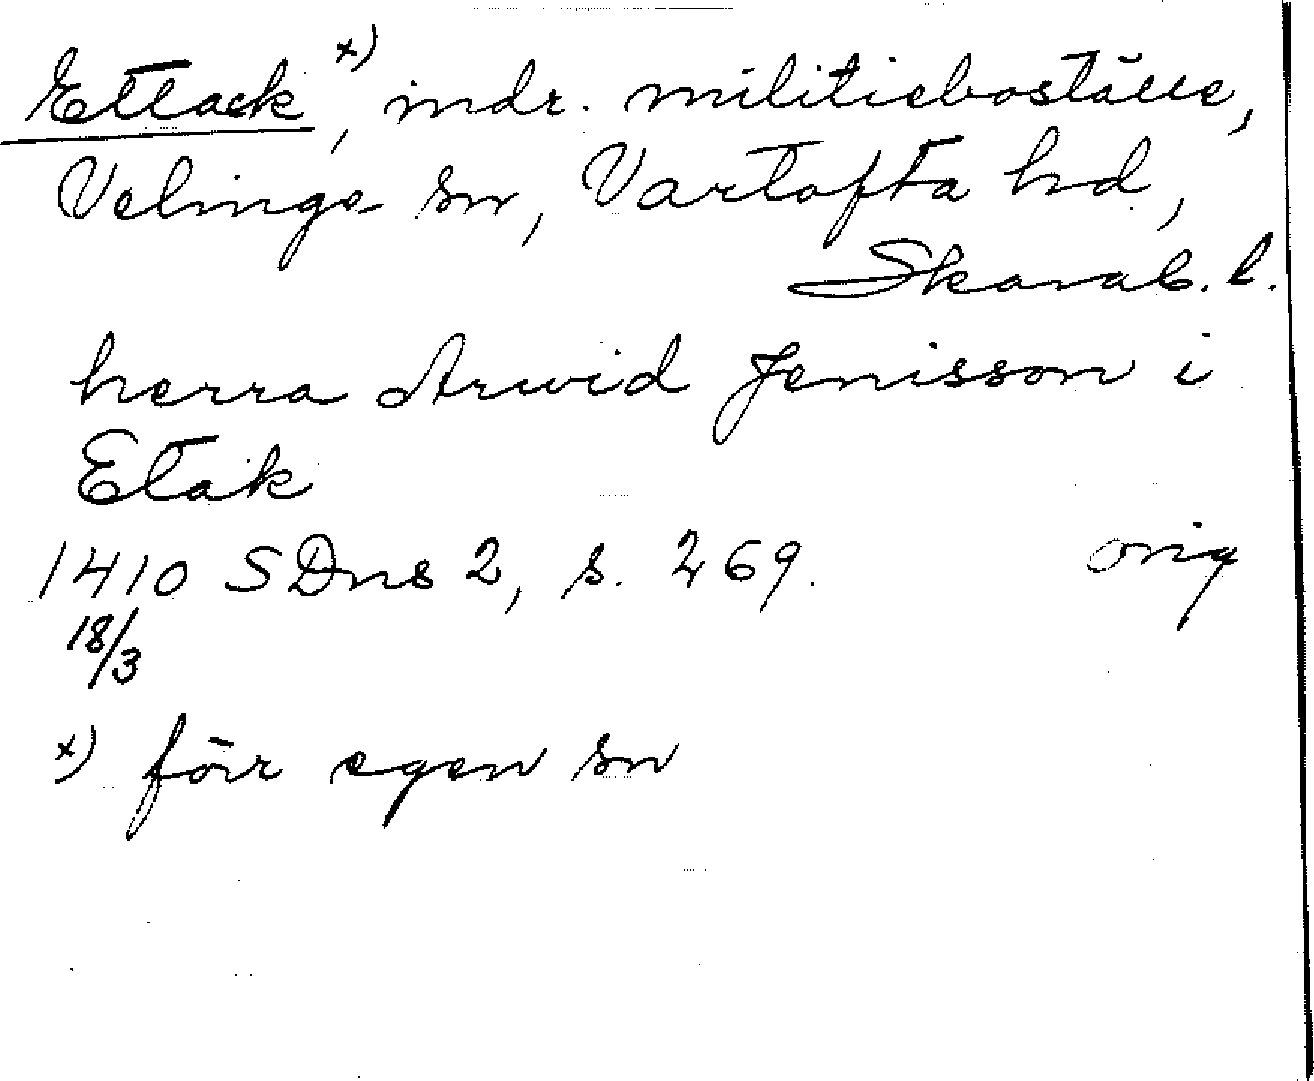 Ettack x), indr. militieboställe,
Velinga sn, Vartofta hd,
Skarab. l.
herra Arwid Jenisson i
Etak
1410 SDns 2, s. 269. orig
18/3
x) förr egen sn